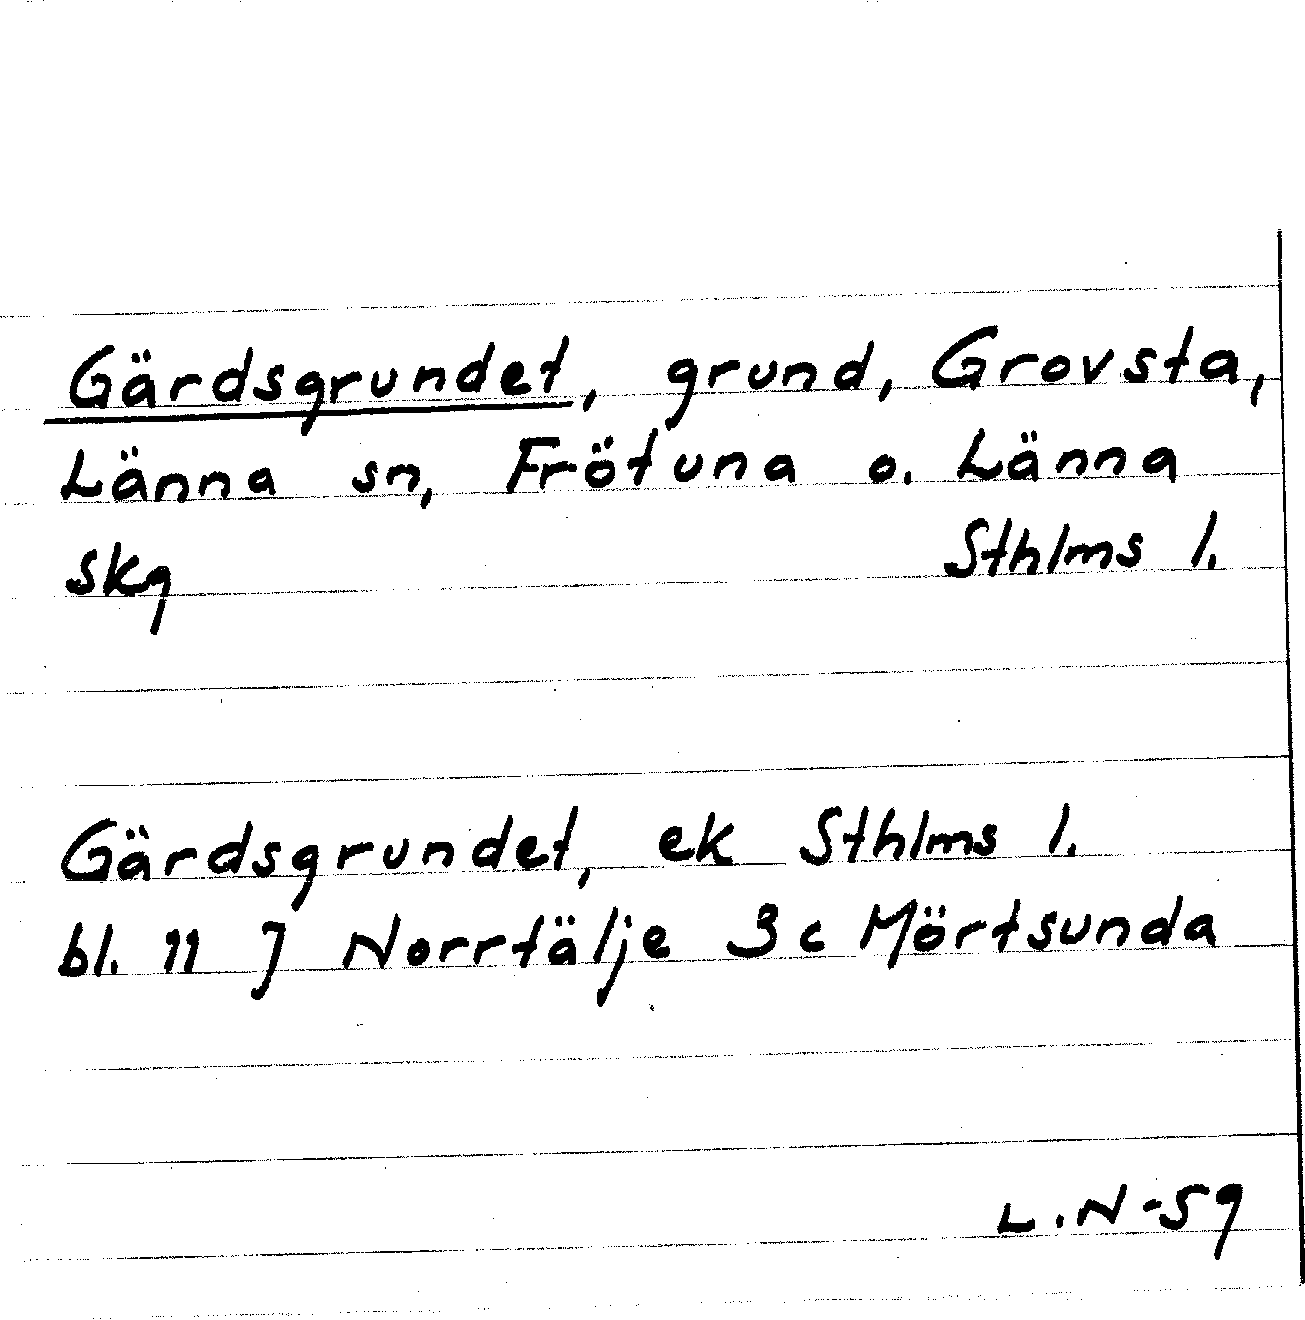 Gärdsgrundet, grund, Grovsta,
Länna sn, Frötuna o. Länna
skg Sthlms l.
Gärdsgrundet, ek Sthlms l.
bl. 11 J Norrtälje 3c Mörtsunda
L.N-59